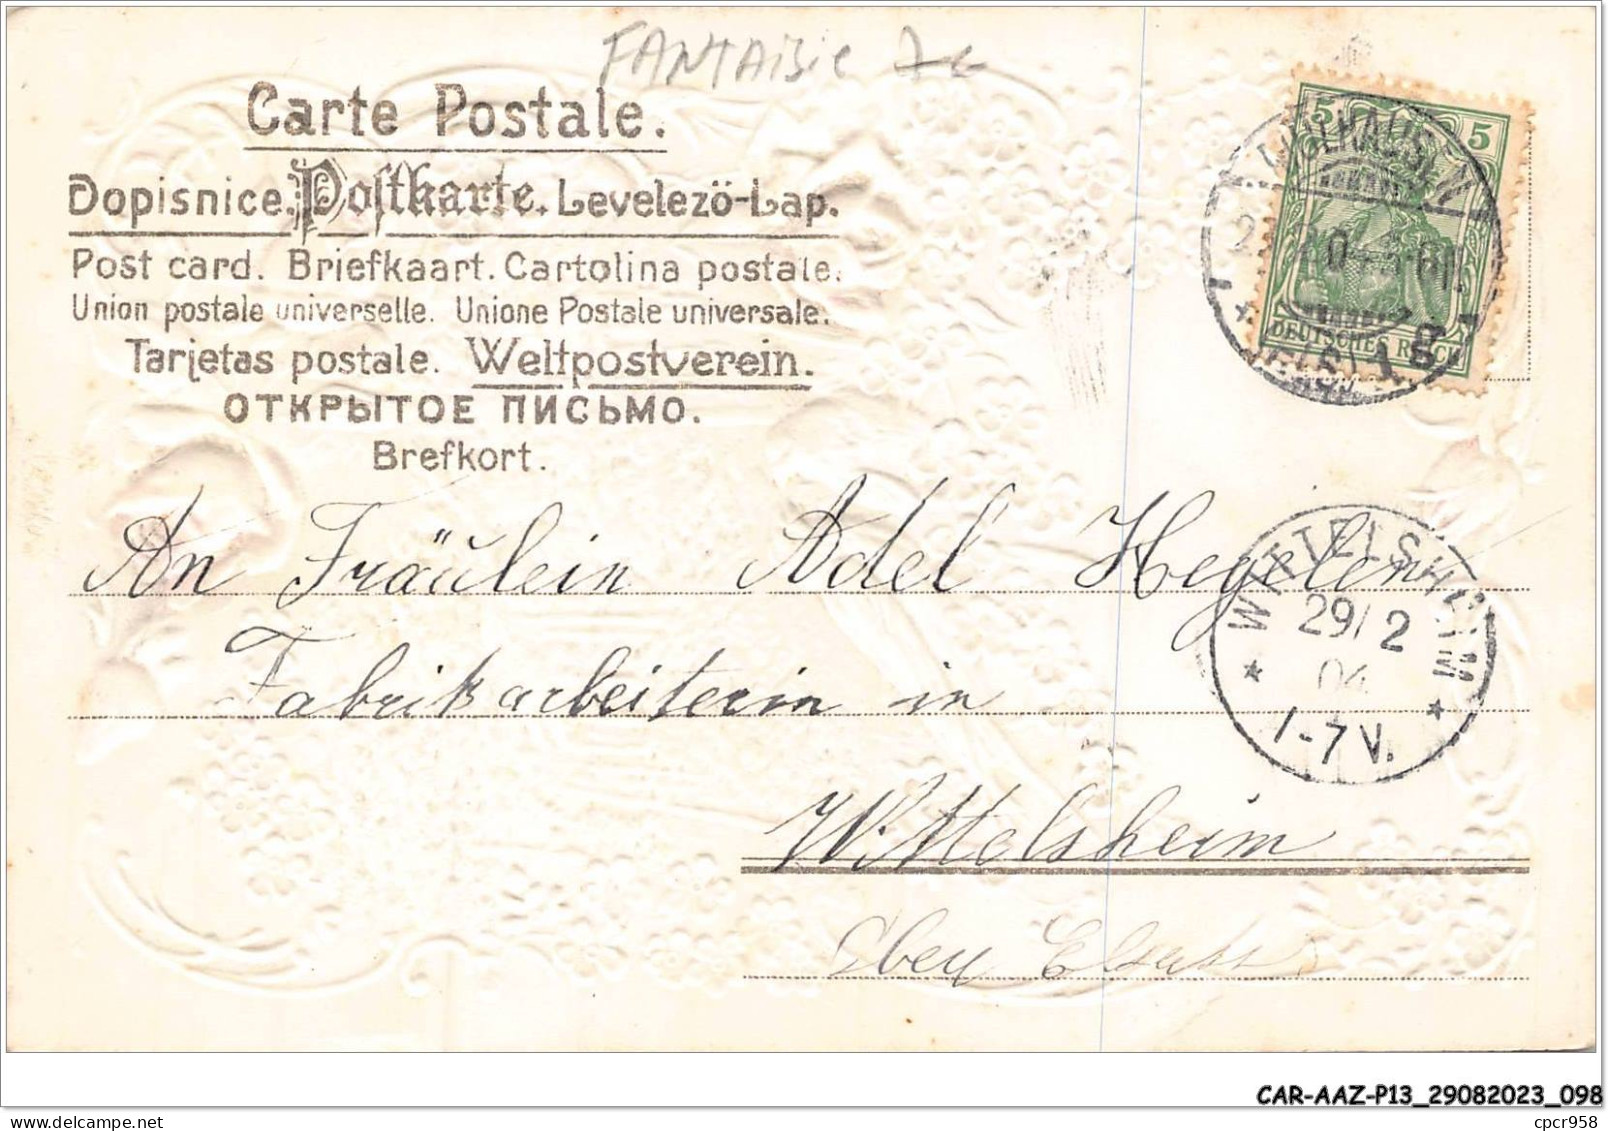 FANTAISIE 7€
Carte Postale.
Dopisnice. Postkarte. Levelezö-Lap.
Post card. Briefkaart. Cartolina postale.
Union postale universelle. Unione Postale universale.
Tarjetas postale. Weltpostverein.
ОТКРЫТОЕ ПИСЬМО.
Brefkort.
5 5
DEUTSCHES REICH
MÜLHAUSEN
(ELS) 1
An Fräulein Adel Hegelen
WITTELSHEIM
29/2
04
1-7 V.
Fabrikarbeiterin in
Wittelsheim
Ober Elsass
CAR-AAZ-P13_29082023_098
cpcr958